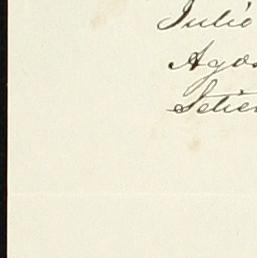 Julio
Agos
Setie